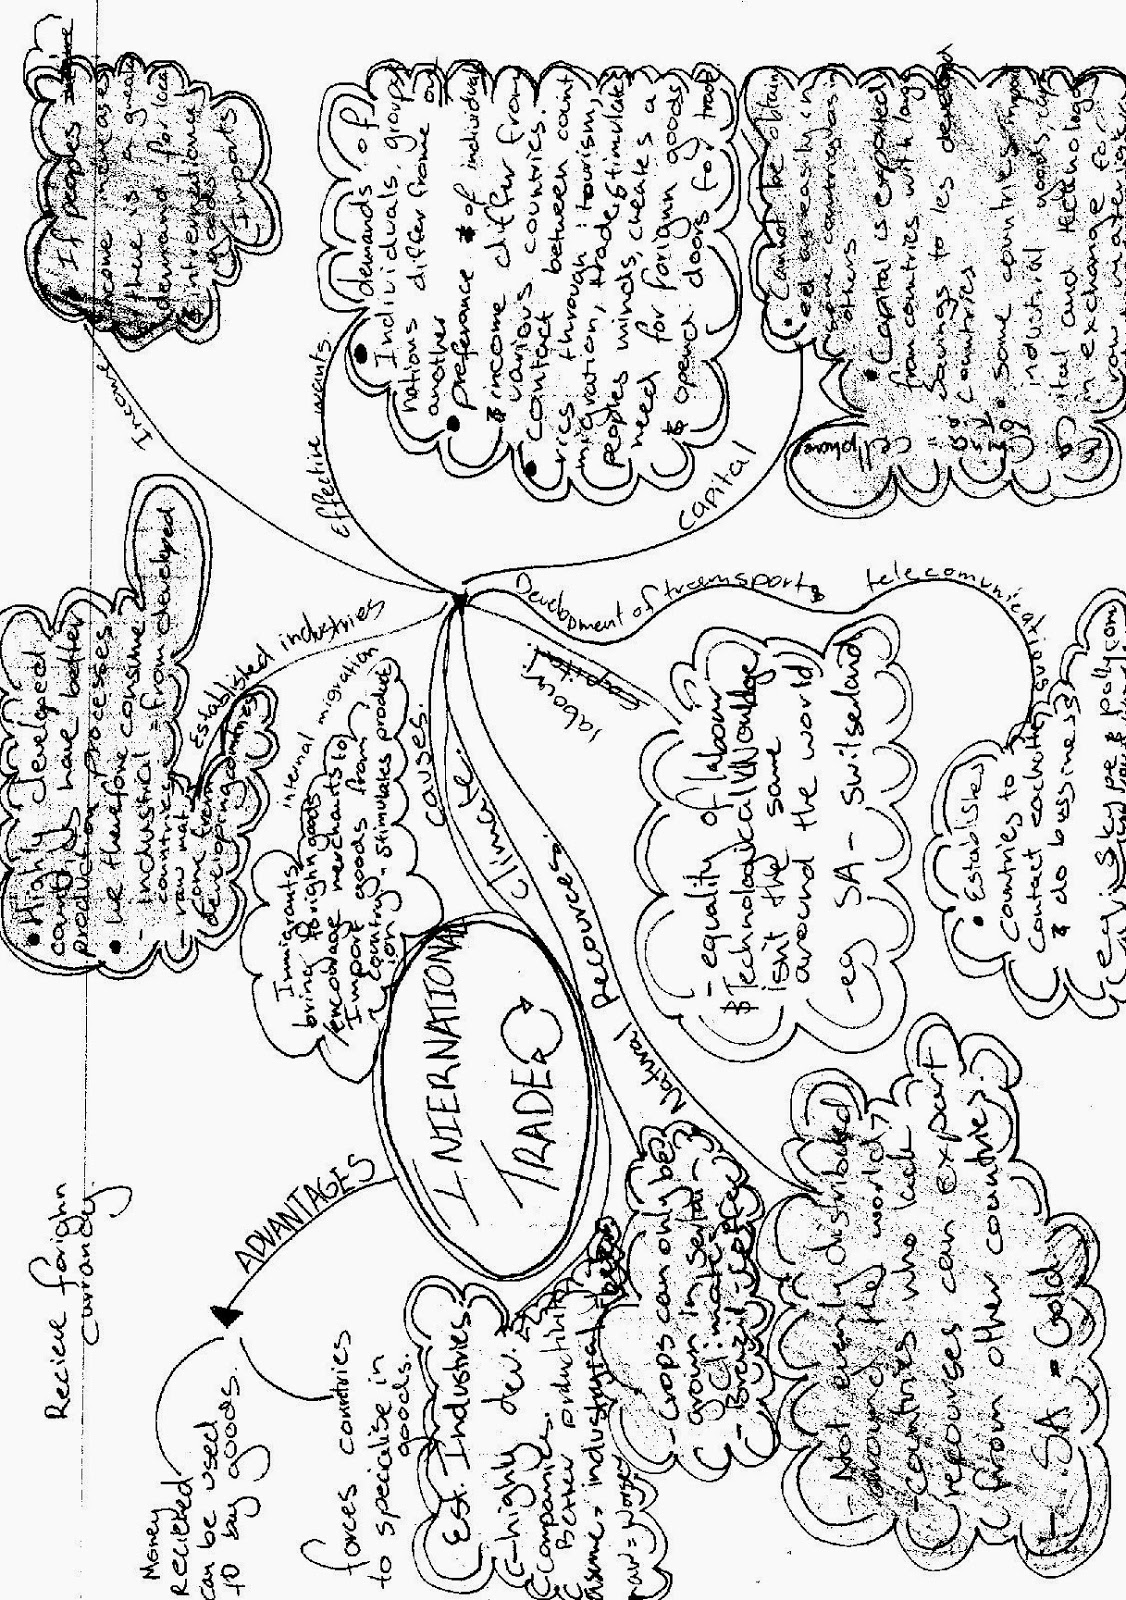 INTERNATIONAL
TRADE
ADVANTAGES
Recieve forighn
currancy.
Money
recieved
can be used
to buy goods.
forces countries
to specialise in
goods.
causes.
Income
• If peoples
income increases
there is a greater
demand for local
& internentional
goods
(imports)
Effective wants.
• demands of
Individuals, groups
nations differ frome one
another
• preferance of individuals
& income differ from
various countries.
• Contact between count
ries through: tourism,
migration, trade, stimulates
peoples minds, creates a
need for forighn goods
& opens doors for trade
Capital
• Cannot be obtain
ed as easily in
some countries as in
others
• Capital is exported
from countries with large
savings to les developed
countries
• Some countries import
industrial goods, cap
ital and technology
in exchange for
raw materials
cellphone
Development of transport &
telecomunications
• Establishes
Countries to
Contact eachother
& do bussiness
eg: Skype
labour
- equality of labour
& Technolagical KNOwledge
isn't the same
around the world
- eg SA - Switserland
Natural recources.
- Not evenly distributed
around the world
- countries who lack
recourses can export
from other countries.
- SA = Gold
Climate.
- Crops can only be
grown in sertain
Climates
- Brazil - coffee
Est. Industries
- highly dev.
Companies.
Better productivity
Established industries
• Highly developed
countries have better
production processes
• We therefore consume
- industrial = from developed
countries
- raw mat. = 
come from
developing countries
internal migration
Immigrants
bring forighn goods
encourage merchants to
Import goods from
country - stimulates product
ion